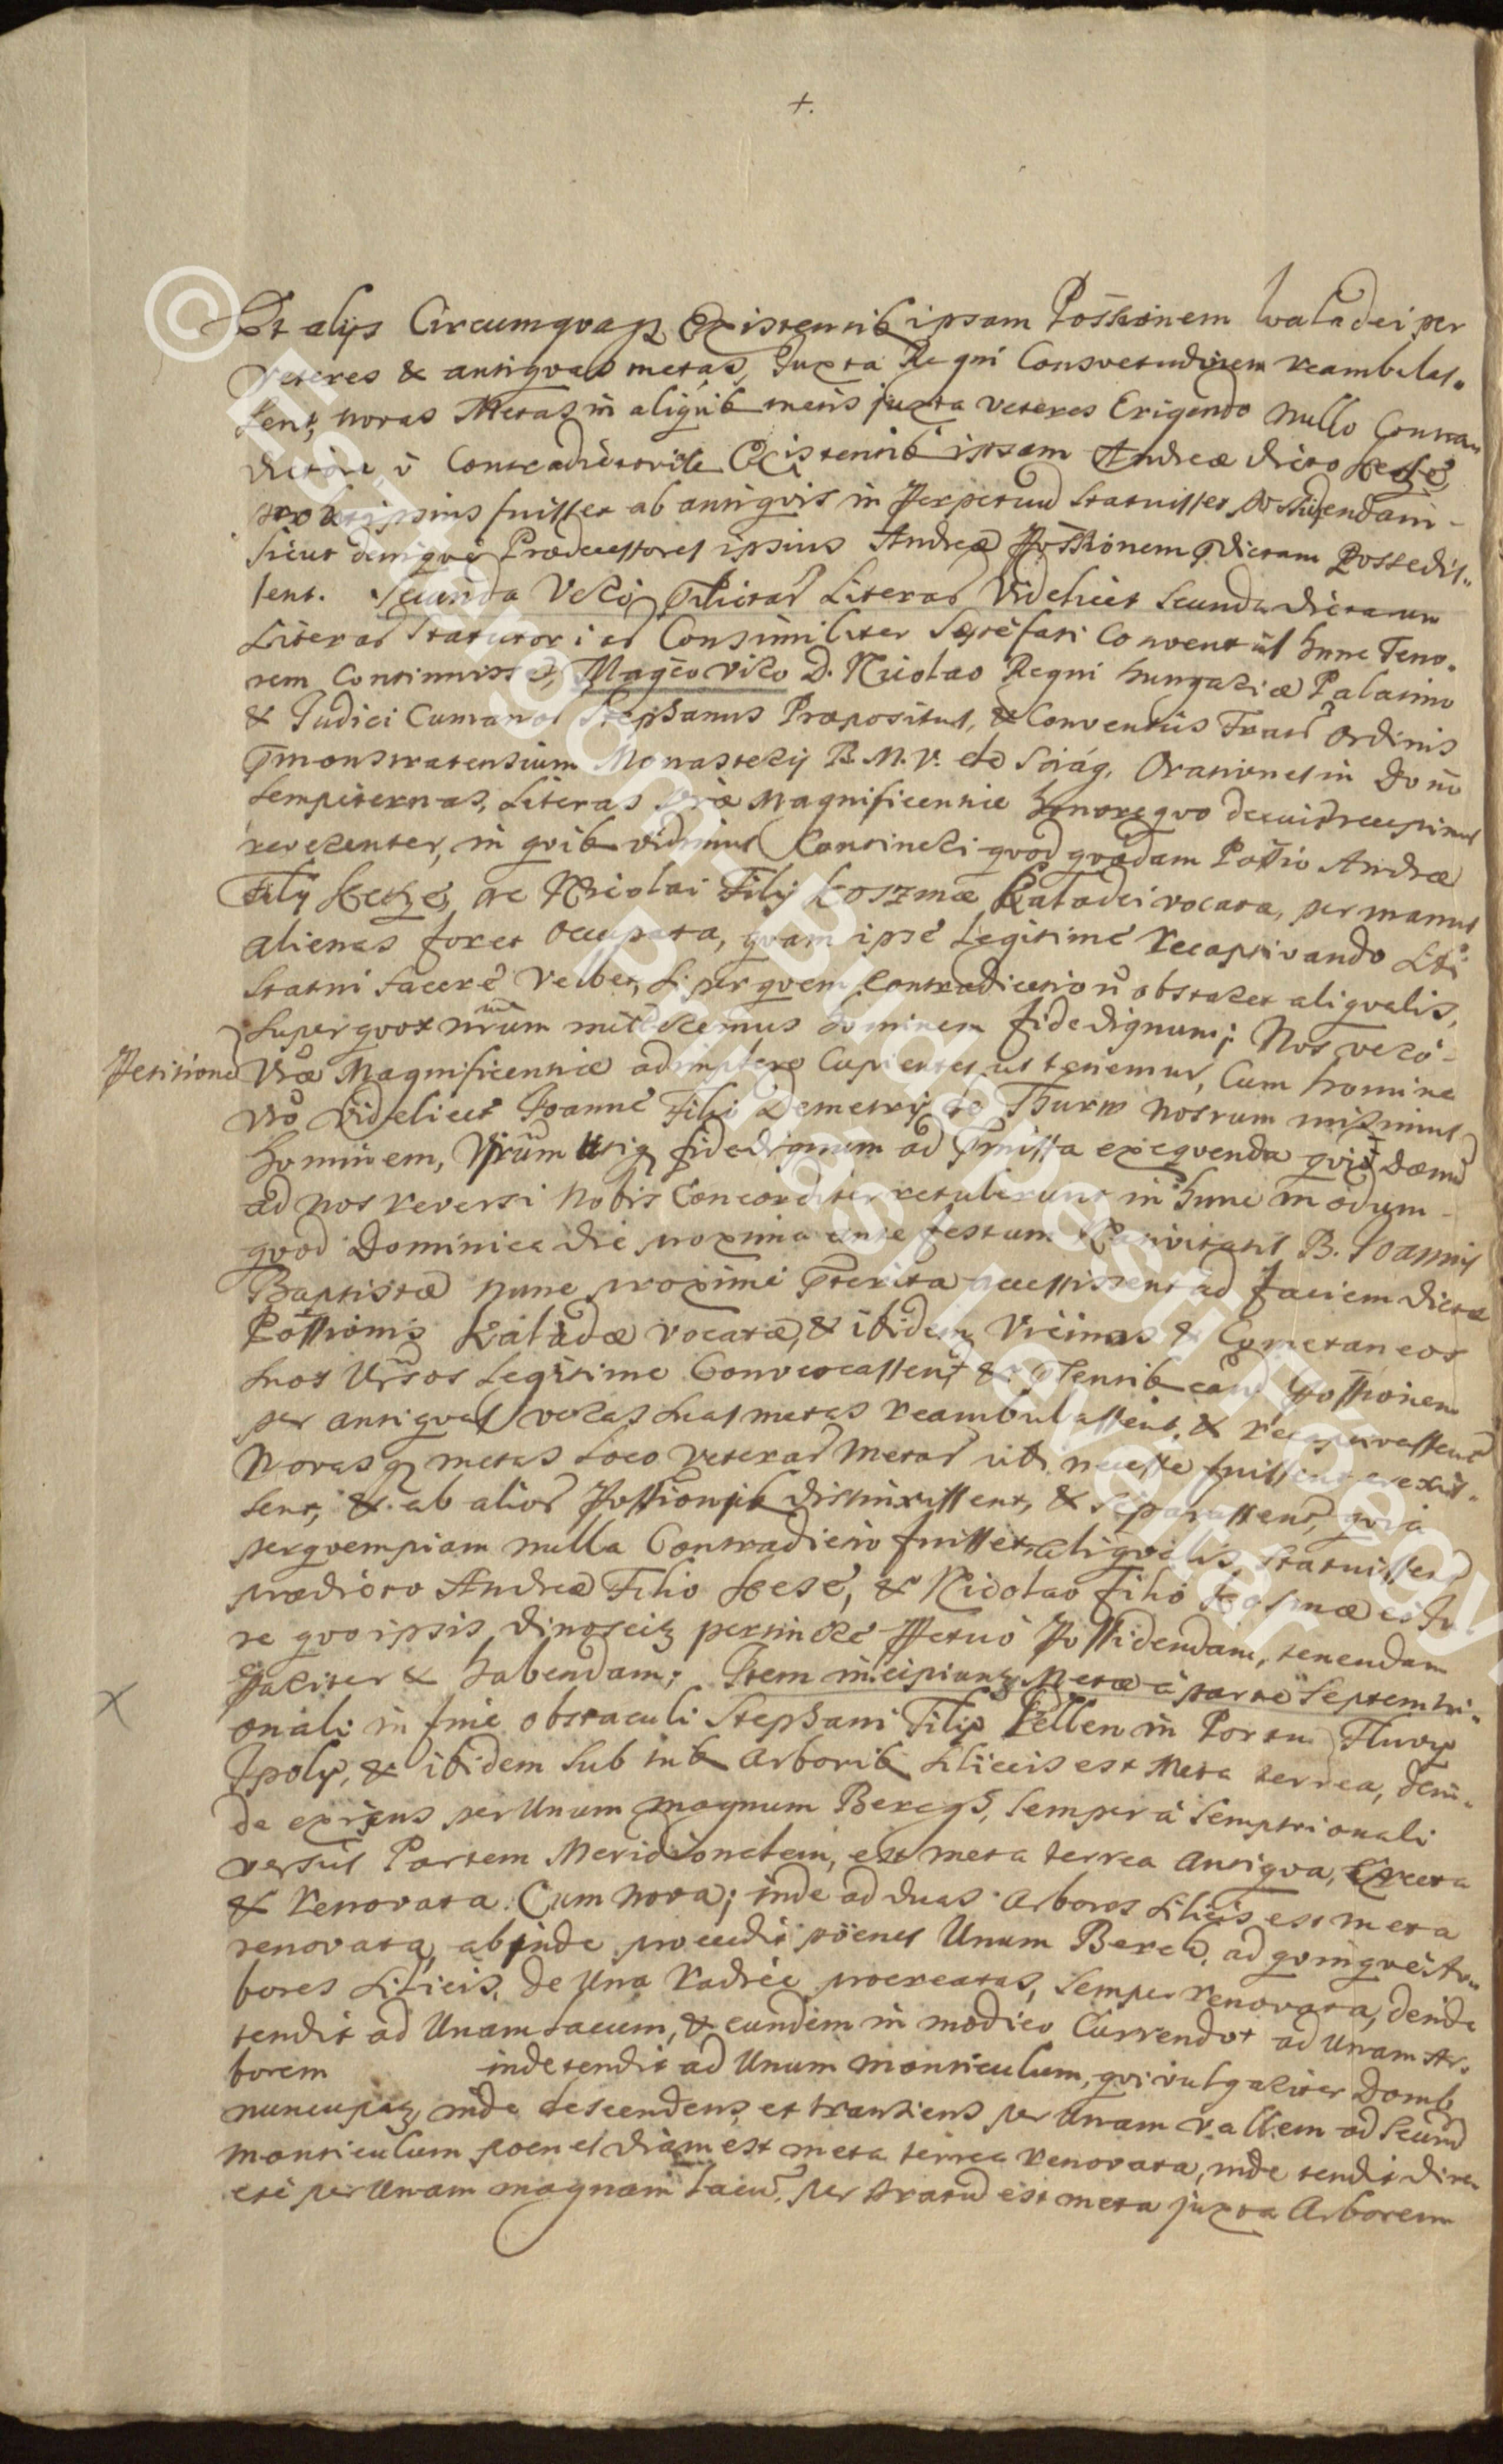 +.
Et alys Circumquaqz Existentib ipsam Possionem Waladei per
veteres & antiquas metas, Juxta Regni Consvetudinem reambulas„
sent, novas Metas in aliquib metis juxta veteres Erigendo nullo Contra„
dictore, Contradictorib Existentib ipsam Andreæ dicto Kecse,
fuisset ab antiquis in Perpetuū statuisset possidendam
sicut denique Prædecessores ipsius Andreæ Possionem ꝑdictam possedis„
sent. Secunda Vero Literar̄ Videlicet Secunda dictarum
Literar̄ Statutoriar̄ Consimiliter Sæpefati Conventus hunc Teno„
rem Continuisset, Magco Viro D. Nicolao Regni Hungariæ Palatino
& Judici Cumanor Stephanus Præpositus, & Conventus Fratr̄ Ordinis
Pmonstratensium Monastery B. M. V. de Ság, Orationes in Dōno
Sempiternas, Literas Vræ Magnificentiæ honore quo decuit recepimus
reverenter, in quib vidimus Contineri quod quædam Possio Andreæ
Fily Kecse, ac Nicolai Fily Koszmæ Kaladei vocata, per manus
alienas foret occupata, quam ipse Legitime recaptivando Sibi
Statui facere vellet, si per quem Contradictionū obstaret aliqualis,
Super quor nrum mitteremus hominem fide dignum; Nos vero
Petitione Vræ Magnificentiæ adimplere Cupientes ut tenemur, Cum homine
Vro Videlicet Joanne Filio Demetry de Thurw nostrum misimus
hominem, Virum utiqz fide dignum ad Pmissa exequenda qui demū
ad nos reversi nobis Concorditer retulerunt in hunc modum
quod Dominica die proxima ante festum Nativitatis B. Joannis
Baptistæ nunc proxime Pterita accessissent ad faciem dictæ
Possionis Kaladæ vocatæ, & ibidem Vicinos & Cometaneos
suos Vrsos Legitime Convocassent, & Psentib eād Possionem
per antiquas veras suas metas reambulassent, & recaptivassent
Novasqz metas Loco veterar̄ Metar̄ ubi necesse fuissent erexis„
sent, & ab alior̄ Possionib distinxissent, & separassent, quia
per quempiam nulla Contradictio fuisset aliqualis, statuissent
prædicto Andreæ Filio Kese, & Nicolao filio Kosmæ eo Ju
re quo ipsis dinoscitz pertinere Ppetuo Possidendam, tenendam
Pariter & habendam; Item incipiuntz Metæ a parte Septemtri„
onali in fine obstaculi Stephani Filij Pellen in Portu Fluvy
Ipoly, & ibidem Sub tribus Arborib Siliceis est Meta terrea, dein„
de exiens per Unum magnum Beregh, semper a Semptrionali
versus Partem Meridionalem, est meta terrea antiqua, Erecta
& renovata Cum nova; inde ad duas Arbores Silicis est meta
renovata, abinde procedit pœnes Unum Berek, ad quinque Ar„
bores Silicis, de Una radice procreatas, semper renovata, deinde
tendit ad Unam Lacum, & eundem in modico Currendo ad Unam Ar„
borem inde tendit ad Unum monticulum, qui vulgariter Domb
nuncupatz inde descendens et transiens per Unam vallem ad Secund
monticulum pœnes viam est meta terrea renovata, inde tendit dire„
cte per Unam magnam Lacū, per Stratū est meta juxta Arborem
© Esztergomi Főegyházmegyei
Prímási Levéltár